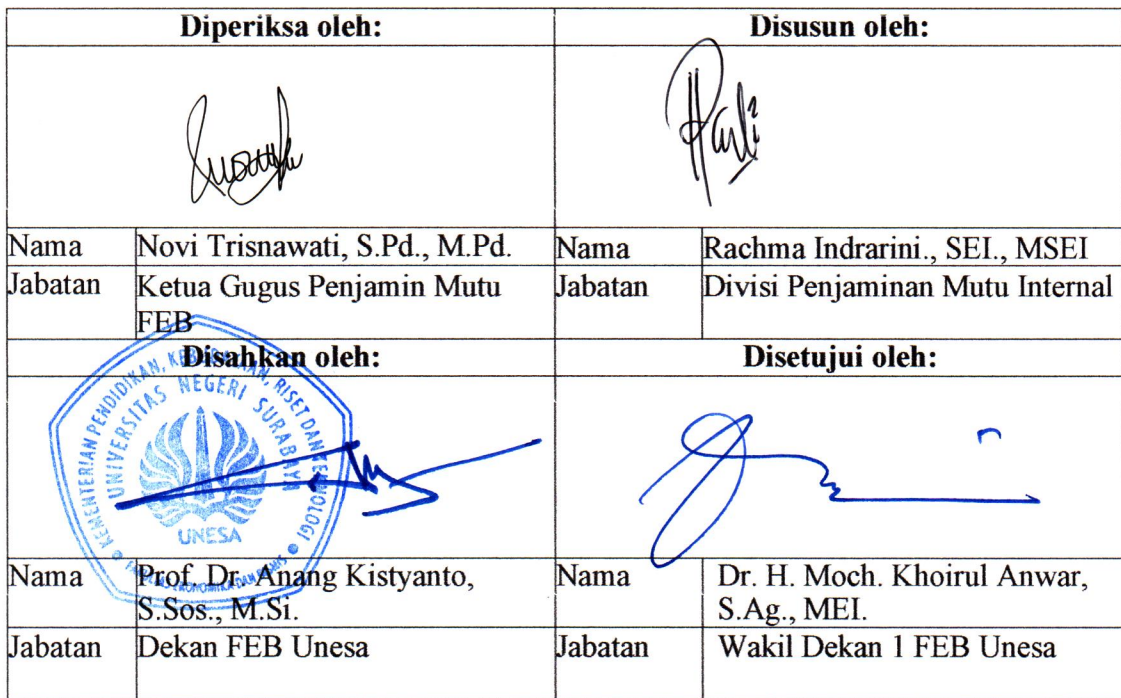 Diperiksa oleh:
Disusun oleh:
Nama Novi Trisnawati, S.Pd., M.Pd.
Nama Rachma Indrarini., SEI., MSEI
Jabatan Ketua Gugus Penjamin Mutu
FEB
Jabatan Divisi Penjaminan Mutu Internal
Disahkan oleh:
Disetujui oleh:
KEMENTERIAN PENDIDIKAN, KEBUDAYAAN, RISET DAN TEKNOLOGI
UNIVERSITAS NEGERI SURABAYA
UNESA
FAKULTAS EKONOMIKA DAN BISNIS
Nama Prof. Dr. Anang Kistyanto,
S.Sos., M.Si.
Nama Dr. H. Moch. Khoirul Anwar,
S.Ag., MEI.
Jabatan Dekan FEB Unesa
Jabatan Wakil Dekan 1 FEB Unesa